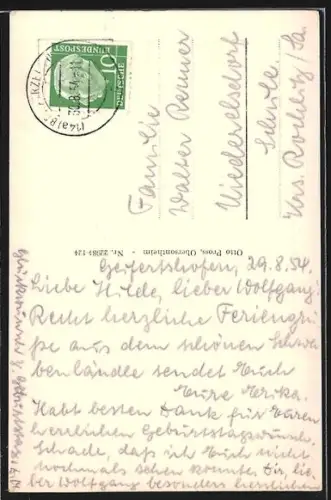 DEUTSCHE
BUNDESPOST
10
(14a)
29.8.54
Familie
Walter Renner
Niederelsdorf
Schule
Krs. Rochlitz/Sa.
Otto Pross, Obersontheim - Nr. 22983-124
Geifertshofen, 29.8.54.
Liebe Hilde, lieber Wolfgang!
Recht herzliche Feriengrü-
ße aus dem schönen Schwa-
benländle sendet Euch
Eure Erika.
Habt besten Dank für Euren
herrlichen Geburtstagswunsch.
Schade, daß ich Euch nicht
nochmals sehen konnte. Dir, lie-
ber Wolfgang besonders herzlichen